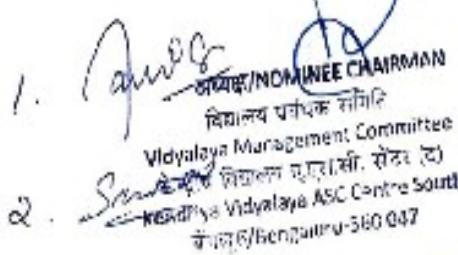 1.
अध्यक्ष/NOMINEE CHAIRMAN
विद्यालय प्रबंधक समिति
Vidyalaya Management Committee
2. विद्यालय ए.एस.सी. सेंटर (द)
Kendriya Vidyalaya ASC Centre South
बेंगलूरु/Bengaluru-560 047